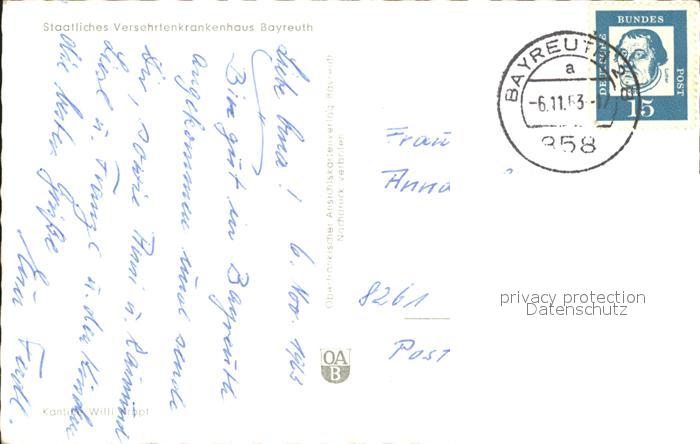 Staatliches Versehrtenkrankenhaus Bayreuth
Lb. Anna! 6. Nov. 1963
Bin gut in Bayreuth
angekommen und sende
Dir, sowie Anni u. Raimund
Liesl u. Franzl u. die Kinder
die besten Grüße
Ferdl.
Oberfränkischer Ansichtskartenverlag Bayreuth
Nachdruck verboten
OA
B
Kantine Willi
BAYREUTH 2
a
-6.11.63-17
858
DEUTSCHE
BUNDES
POST
Luther
15
Frau
Anna
8261
Post
privacy protection
Datenschutz